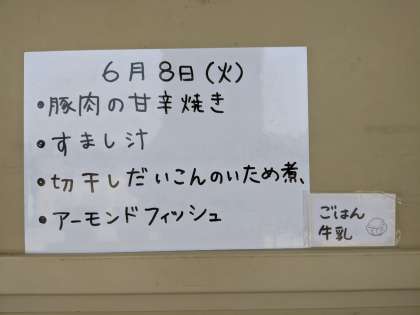 6月8日(火)
・豚肉の甘辛焼き
・すまし汁
・切干しだいこんのいため煮、
・アーモンドフィッシュ
ごはん
牛乳